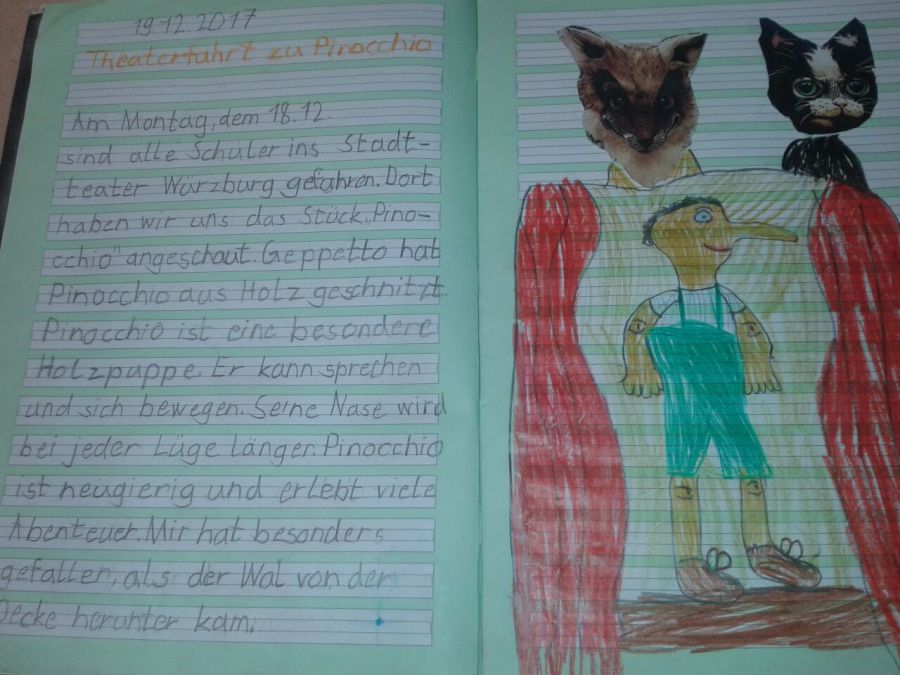 19.12.2017
Theaterfahrt zu Pinocchio
Am Montag, dem 18.12.
sind alle Schüler ins Stadt-
teater Würzburg gefahren. Dort
haben wir uns das Stück „Pino-
cchio" angeschaut. Geppetto hat
Pinocchio aus Holz geschnitzt.
Pinocchio ist eine besondere
Holzpuppe. Er kann sprechen
und sich bewegen. Seine Nase wird
bei jeder Lüge länger. Pinocchio
ist neugierig und erlebt viele
Abenteuer. Mir hat besonders
gefallen, als der Wal von der
Decke herunter kam.